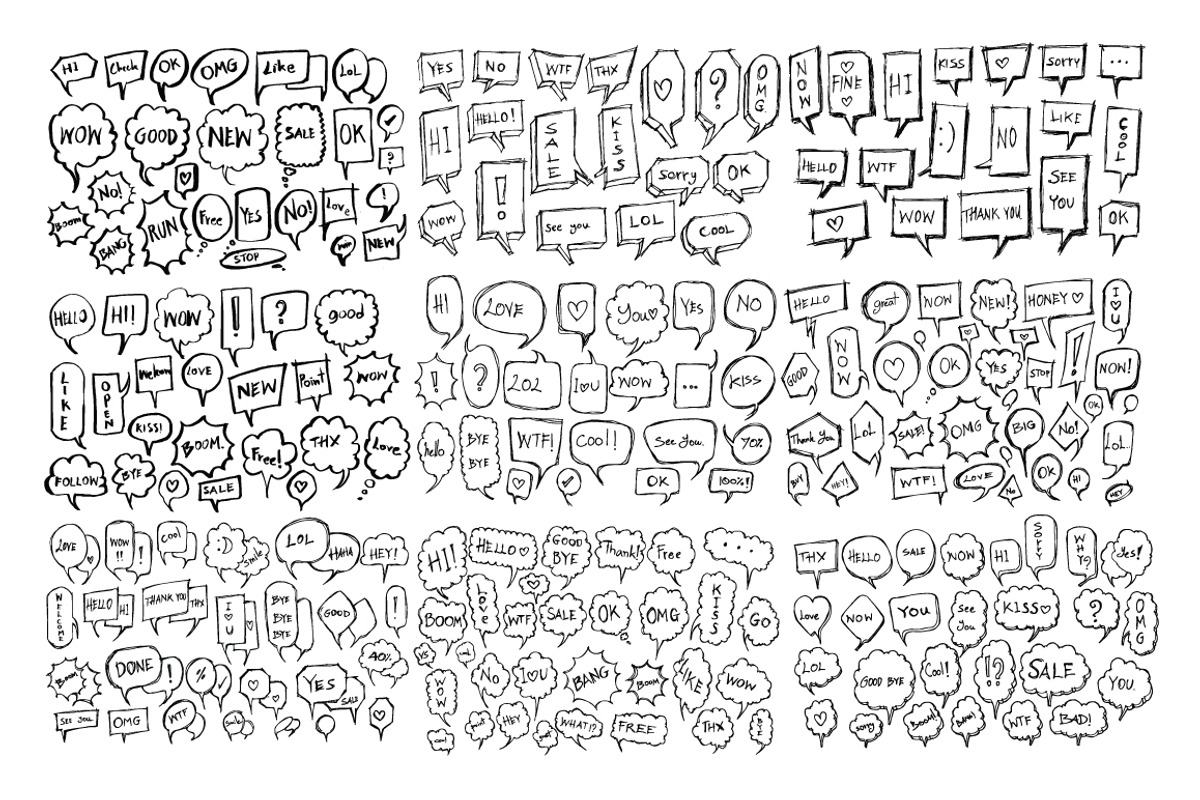 HI
Check
OK
OMG
Like
LOL
WOW
GOOD
NEW
SALE
OK
?
NO!
Boom
BANG
RUN
Free
YES
NO!
Love
!
STOP
NEW
YES
NO
WTF
THX
?
OMG
HI
HELLO!
SALE
KISS
!
Sorry
OK
WOW
See you
LOL
COOL
NOW
FINE
HI
KISS
SORRY
...
:)
NO
LIKE
COOL
HELLO
WTF
SEE
YOU
WOW
THANK YOU
OK
HELLO
HI!
WOW
!
?
good
LIKE
OPEN
Welcom
LOVE
NEW
Point
WOW
KISS!
BOOM.
Free!
THX
Love
FOLLOW
BYE
SALE
HI
LOVE
You♡
YES
NO
!
?
LOL
I♡U
WOW
...
KISS
hello
BYE
BYE
WTF!
Cool!
See you.
70%
OK
100%!
HELLO
great
WOW
NEW!
HONEY ♡
I♡U
GOOD
WOW
OK
YES
STOP
!
NOW!
Thank You
LOL
SALE!
OMG
BIG
NO!
OK
LOL
BUY
HEY!
WTF!
LOVE
No
OK
HI
HEY
LOVE
WOW
!!
!
Cool
:)
Smile
LOL
HAHA
HEY!
WELCOME
HELLO
HI
THANK YOU
THX
I♡U
BYE
BYE
BYE
GOOD
!
Boom!
DONE
!
%
YES
SALE
40%
See you
OMG
WTF
Smile
HI!
HELLO♡
GOOD
BYE
Thank!
Free
....
BOOM
Love
WTF
SALE
OK
OMG
KISS
GO
WOW
No
I♡U
BANG
BOOM
LIKE
WOW
HEY
WHAT!?
FREE
THX
BYE
THX
HELLO
SALE
NOW
HI
SORRY
WHY?
Yes!
Love
NOW
YOU
See
you
KISS♡
?
OMG
LOL
GOOD BYE
Cool!
!?
SALE
YOU.
Sorry
BOOM!
BANG!
WTF
BAD!